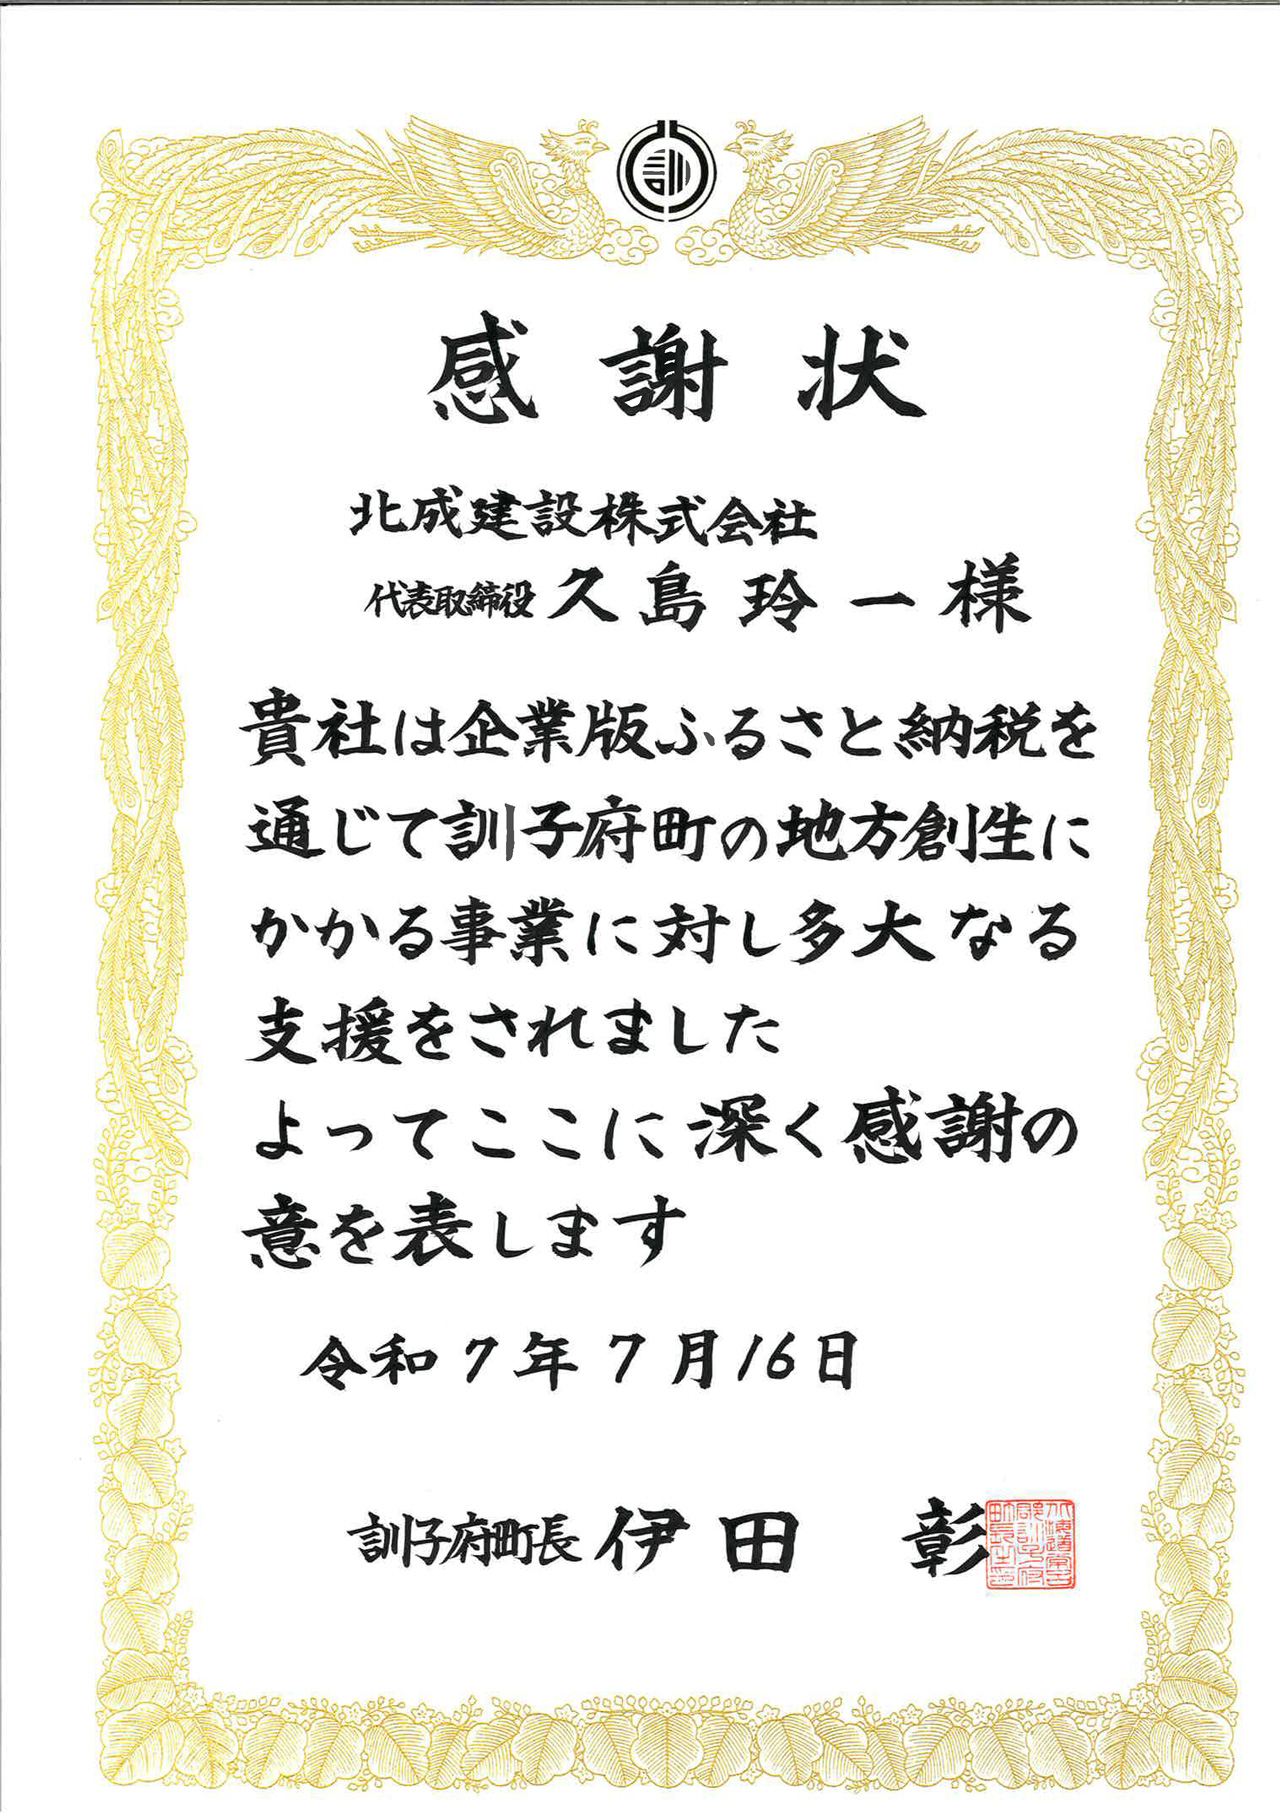 感謝状
北成建設株式会社
代表取締役 久島玲一様
貴社は企業版ふるさと納税を
通じて訓子府町の地方創生に
かかる事業に対し多大なる
支援をされました
よってここに深く感謝の
意を表します
令和7年7月16日
訓子府町長 伊田 彰